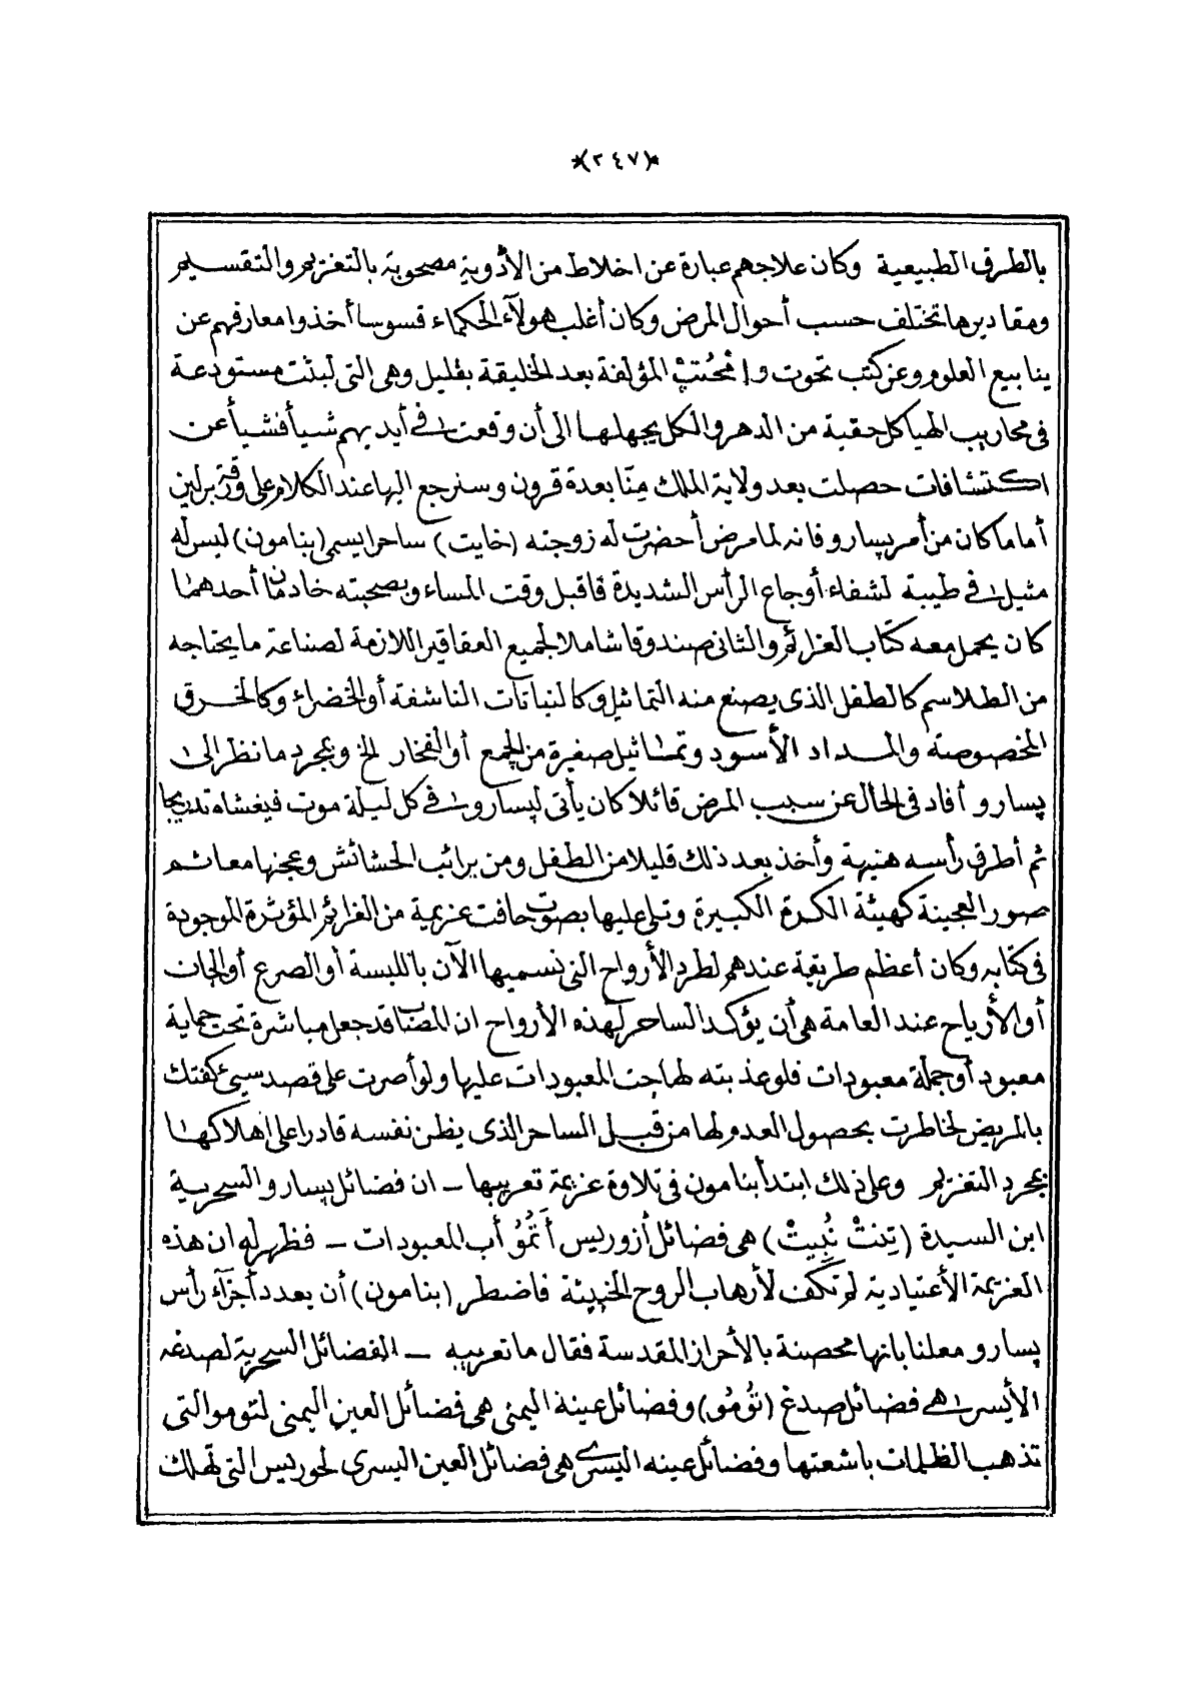 *(٢٤٧)*
بالطرق الطبيعية وكان علاجهم عبارة عن اخلاط من الأدوية مصحوبة بالتعزيم والتقسيم
ومقاديرها تختلف حسب أحوال المرض وكان أغلب هولآء الحكماء قسوسا أخذوا معارفهم عن
ينابيع العلوم وعن كتب تحوت و المؤلفة بعد الخليقة بقليل وهى التى لبثت مستودعة
فى محاريب الهياكل حقبة من الدهر والكل يجهلها الى أن وقعت فى أيديهم شيأ فشيأ عن
اكتشافات حصلت بعد ولاية الملك مِنَا بعدة قرون وسنرجع اليها عند الكلام على ورقة برلين
أما ما كان من أمر پسارو فانه لما مرض أحضرت له زوجته (خايت) ساحرا يسمى (بنامون) ليس له
مثيل فى طيبة لشفاء أوجاع الرأس الشديدة فاقبل وقت المساء وبصحبته خادمان أحدهما
كان يحمل معه كتاب العزائم والثانى صندوقا شاملا لجميع العقاقير اللازمة لصناعة ما يحتاجه
من الطلاسم كالطفل الذى يصنع منه التماثيل وكالنباتات الناشفة أو الخضراء وكالخرق
المخصوصة والمداد الأسود وتماثيل صغيرة من الجمع أو الفخار الخ وبمجرد ما نظر الى
پسارو أفاد فى الحال عن سبب المرض قائلا كان يأتى لپسارو فى كل ليلة موت فيغشاه تدريجا
ثم أطرق رأسه هنيهة وأخذ بعد ذلك قليلا من الطفل ومن برائب الحشائش وعجنها معا ثم
صور العجينة كهيئة الكرة الكبيرة وتلى عليها بصوت خافت عزيمة من العزائم المؤثرة الموجودة
فى كتابه وكان أعظم طريقة عندهم لطرد الأرواح التى نسميها الآن باللبسة أو الصرع أو الجان
أو الأرياح عند العامة هى أن يؤكد الساحر لهذه الأرواح ان المصاب قد جعل مباشرة تحت حماية
معبود أو جملة معبودات فلو عذبته لهاجت المعبودات عليها ولو أصرت على قصد سيئ كفتك
بالمريض لخاطرت بحصول العدم لها من قبل الساحر الذى يظن نفسه قادرا على اهلاكها
بمجرد التعزيم وعلى ذلك ابتدأ بنامون فى تلاوة عزيمة تعريبها – ان فضائل پسارو السحرية
ابن السيدة (تِنتْ نُبِيتْ) هى فضائل أزوريس أَتُمُو أب المعبودات – فظهر له ان هذه
العزيمة الأعتيادية لم تكف لأرهاب الروح الخبيثة فاضطر (بنامون) أن يعدد أجزآء رأس
پسارو معلنا بانها محصنة بالأحراز المقدسة فقال ما تعريبه – الفضائل السحرية لصدغه
الأيسر هى فضائل صدغ (تُومُو) وفضائل عينه اليمنى هى فضائل العين اليمنى لتومو التى
تذهب الظلمات باشعتها وفضائل عينه اليسرى هى فضائل العين اليسرى لحوريس التى تهلك